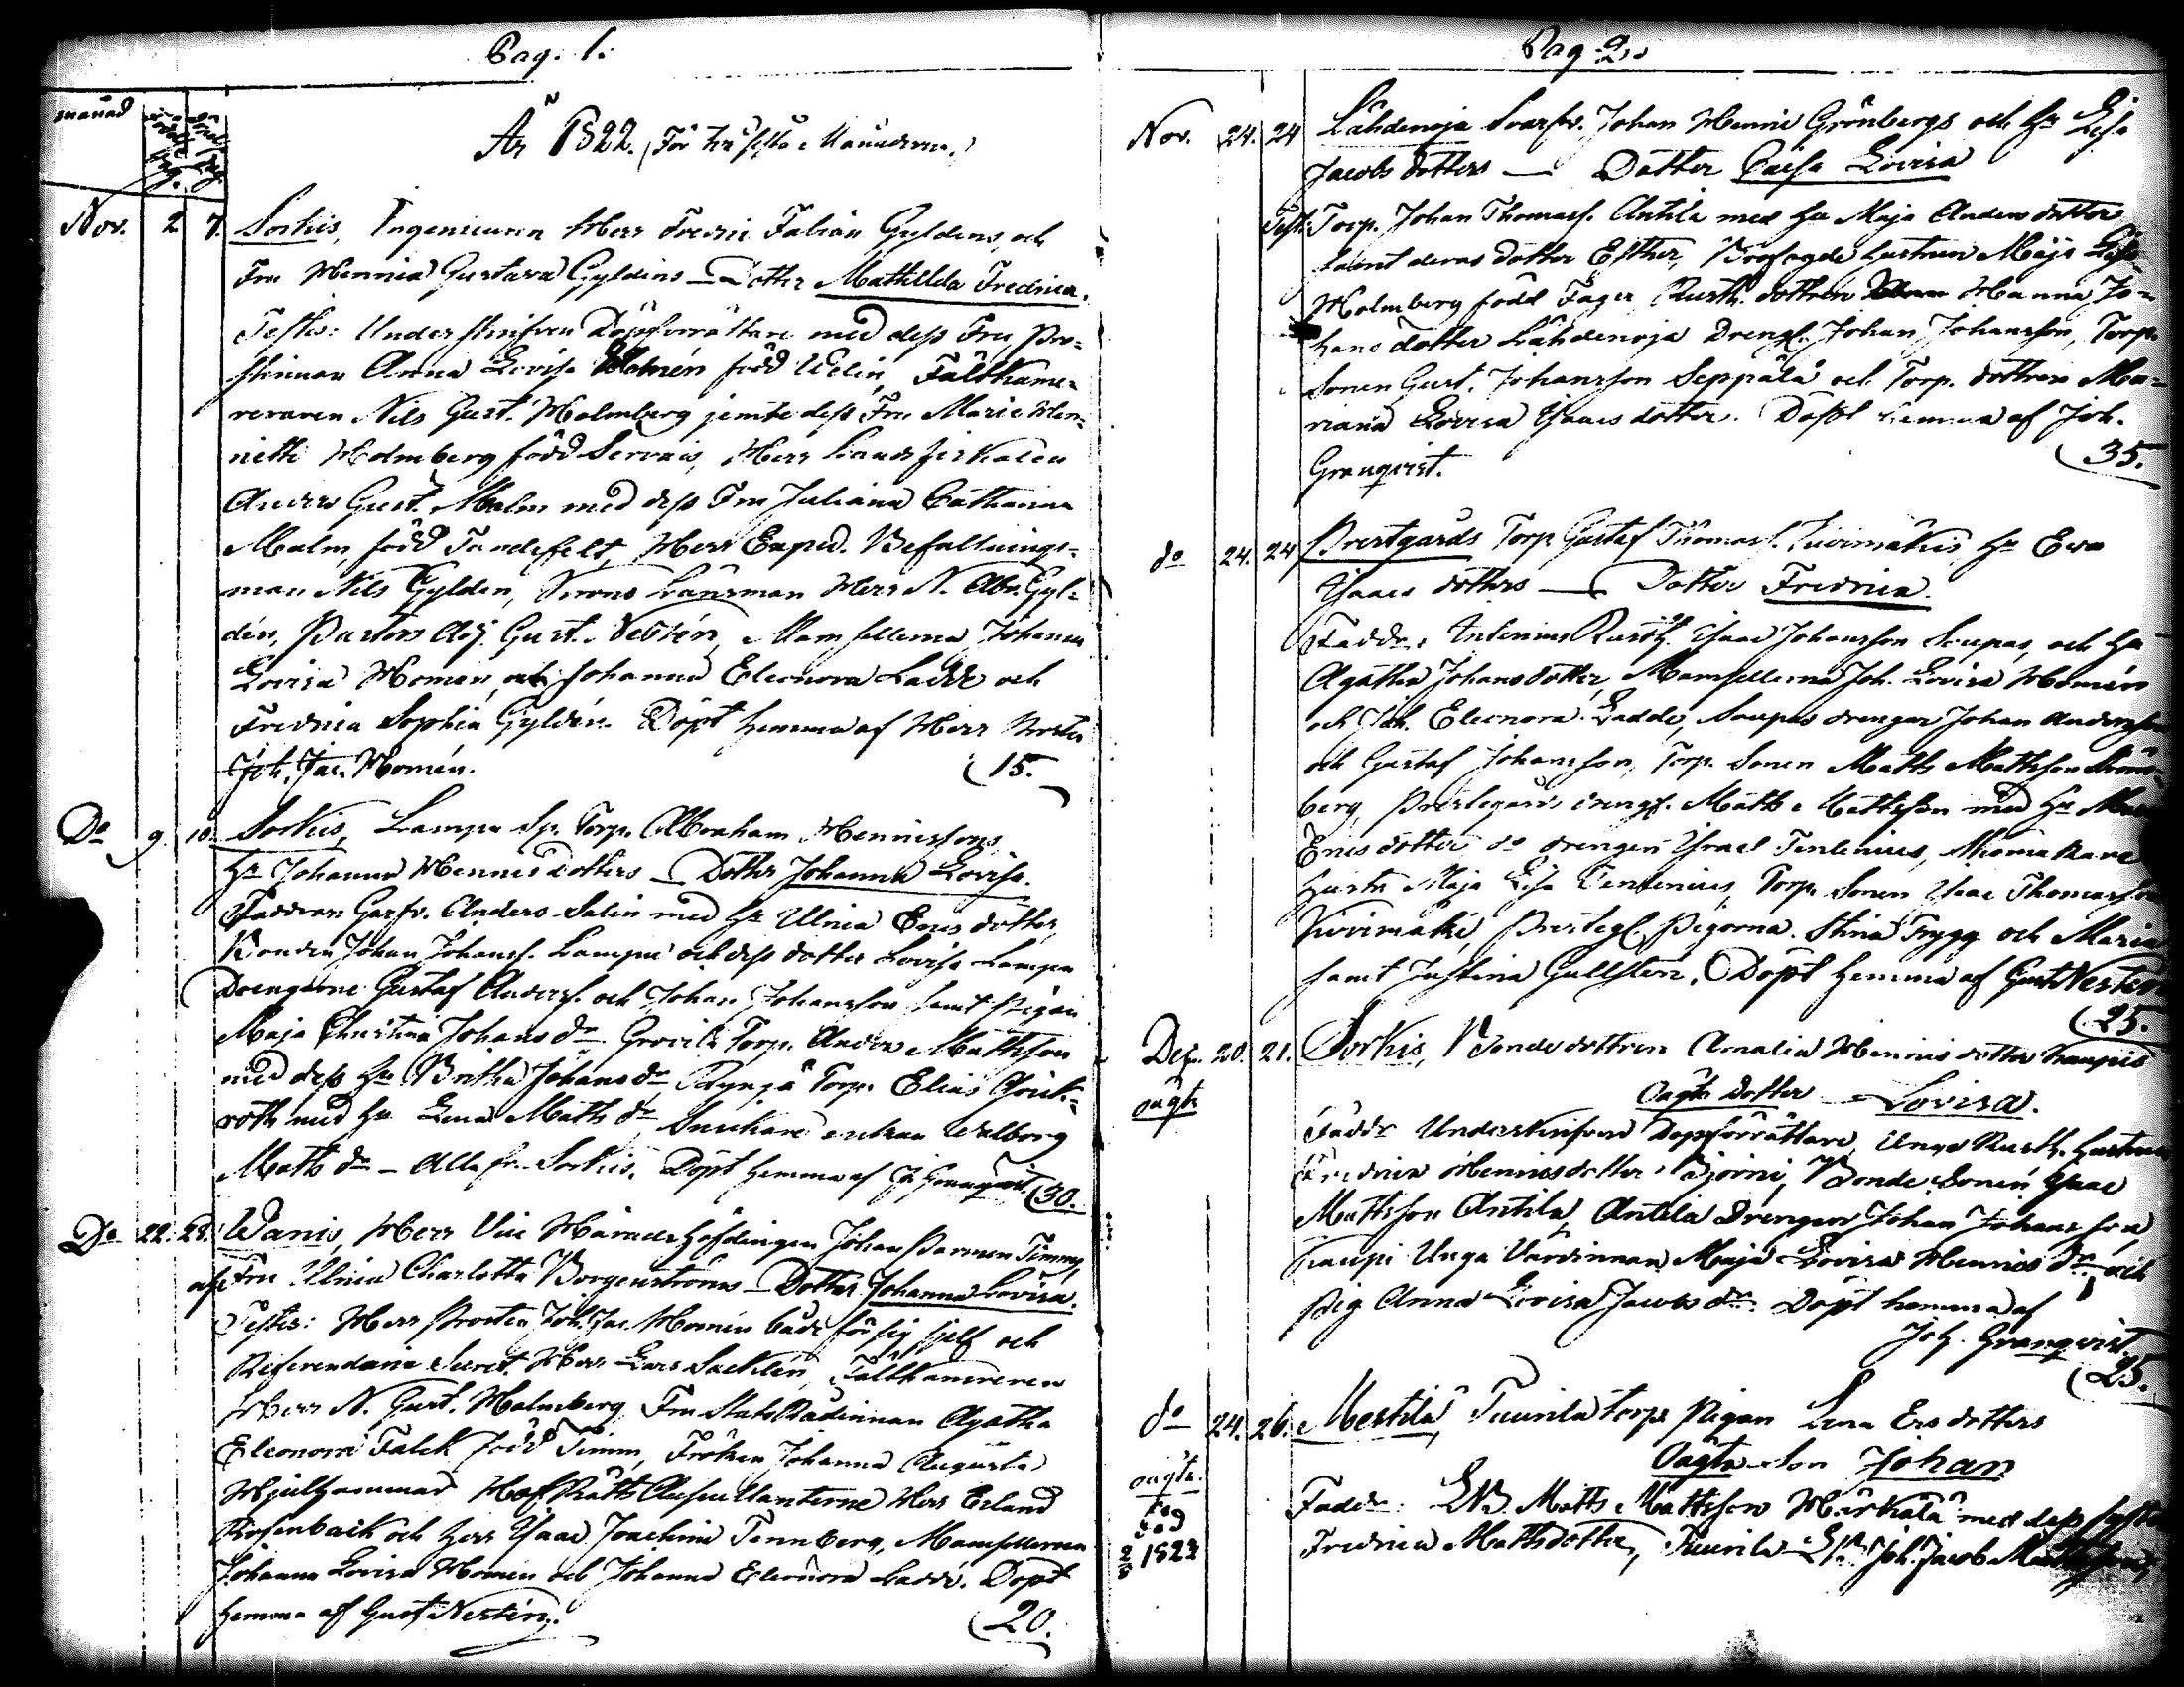 Pag. 1.
månad
År 1822. (För två sista Månaderna.)
Nov. 2 7. Sorkis, Ingenieuren Herr Fredric Fabian Gyldéns, och
Fru Hennica Gustava Gyldéns — Dotter Mathillda Fredrica.
Testes: Underskrifven Döpförrättare med dess Fru Pro-
stinnan Anna Lovisa Homén född Welin, Fältkamre-
reraren Nils Gust. Holmberg jemte dess Fru Marie Hen-
riette Holmberg född Servais, Herr Landsfiskalen
Anders Gust. Malm med dess Fru Juliana Catharina
Malm, född Tandefelt, Herr Exped. Befallnings-
man Nils Gyldén, Krono Länsman Herr N. Abr. Gyl-
dén, Pastors Adj. Gust. Nestén, Mamsellerna Johanna
Lovisa Homén, och Johanna Eleonora Ladde och
Fredrica Sophia Gyldén. Döpt hemma af Herr Prosten
Joh. Jac. Homén. (15.
Do 9. 10. Sorkis, Lampu Sp. Torp. Abraham Henricssons,
Hu Johanna Henricsdotters — Dotter Johanna Lovisa.
Faddrar: Garfv. Anders Salin med Hu Ulrica Ericsdotter,
Bonden Johan Johanss. Lampu och dess dotter Lovisa Lampu
Drengarne Gustaf Anderss. och Johan Johansson samt Pigan
Maja Christina Johansdr Torp. Anders Mattsson
med dess Hu Britha Johansdr Torp. Elias
roth med Hu Lena Mattsdr enkan Walborg
Mattsdr — Alla fr. Sorkis. Döpt hemma af J. Granqvist. (30.
Do 22. 23. Wanis, Herr Vice Häradshöfdingen Johan Timms,
Fru Ulrica Charlotta Borgenströms — Dotter Johanna Lovisa.
Testes: Herr Prosten Joh. Jac. Homén både för sig sjelf och
Referendarie Secret. Herr Lars Sacklén, Fältkamreren
Herr N. Gust. Holmberg, Fru StatsRådinnan Agatha
Eleonora Falck född Timm, Fröken Johanna Augusta
Hjulhammar HofRätts Auscultanterne Herr Erland
Rosenback och Herr Isaac Joachim Tennberg, Mamsellerna
Johanna Lovisa Homén och Johanna Eleonora Ladde. Döpt
hemma af Gust. Nestén. (20.
Pag. 2.
Nov. 24. 24 Lähdenoja Svarfv. Johan Henric Grönbergs och Hu Lisa
Jacobsdotters — Dotter Caisa Lovisa
Test: Torp. Johan Thomass. Antila med Hu Maja Andersdotter
samt deras dotter Esther, Hustrun Maja Lisa
Holmberg född Fager Rusth. dottren Hanna Jo-
hansdotter Lähdenoja Drengs. Johan Johansson, Torp.
Sonen Gust. Johansson Seppälä och Torp. dottren Ma-
riana Lovisa Isaacsdotter. Döpt hemma af Joh.
Granqvist. (35.
do 24. 24 Prestgårds Torp. Gustaf Thomass. Kivimäkis, Hu Eva
Isaacsdotters — Dotter Fredrica.
Faddr: Rusth. Isaac Johansson Seupas, och Hu
Agatha Johansdotter, Mamsellerna Joh. Lovisa Homén
och Joh. Eleonora Ladde, Seupas drengar Johan Andersson
och Gustaf Johansson, Torp. Sonen Matts Mattsson Ström-
berg, Prestegårds drengs. Matts Mattsson med Hu
Ericsdotter do drengen Israel Tenlenius,
Hustr. Maja Lisa Tenlenius, Torp. Sonen Isac Thomasson
Kivimäki, Prestegs. Pigorna. Stina Trygg och Maria
samt Justina Gullsten. Döpt hemma af Gust. Nestén
(25.
Dec. 20. 21. Sorkis, Bonde dottren Amalia Henricsdotter
oägte Oägte dotter — Lovisa.
Faddr. Underskrifven Döpförrättare, Unga Rusth. Hustrun
Fredrica Henricsdotter Björni, Bonde Sonen Isaac
Mattsson Antila, Antila Drengen Johan Johansson
Unga Värdinnan Maja Lovisa Henricsdr och
Pig. Anna Lovisa Jacobsdr Döpt hemma af
Joh. Granqvist.
(25.
do 24. 26. Mertilä, Tuurila Torps Pigan Lena Ersdotters
oägte. Oägta Son Johan
Faddr: Matts Mattsson Härkälä med dess
1823 Fredrica Mattsdotter, Tuurila Joh. Jacob